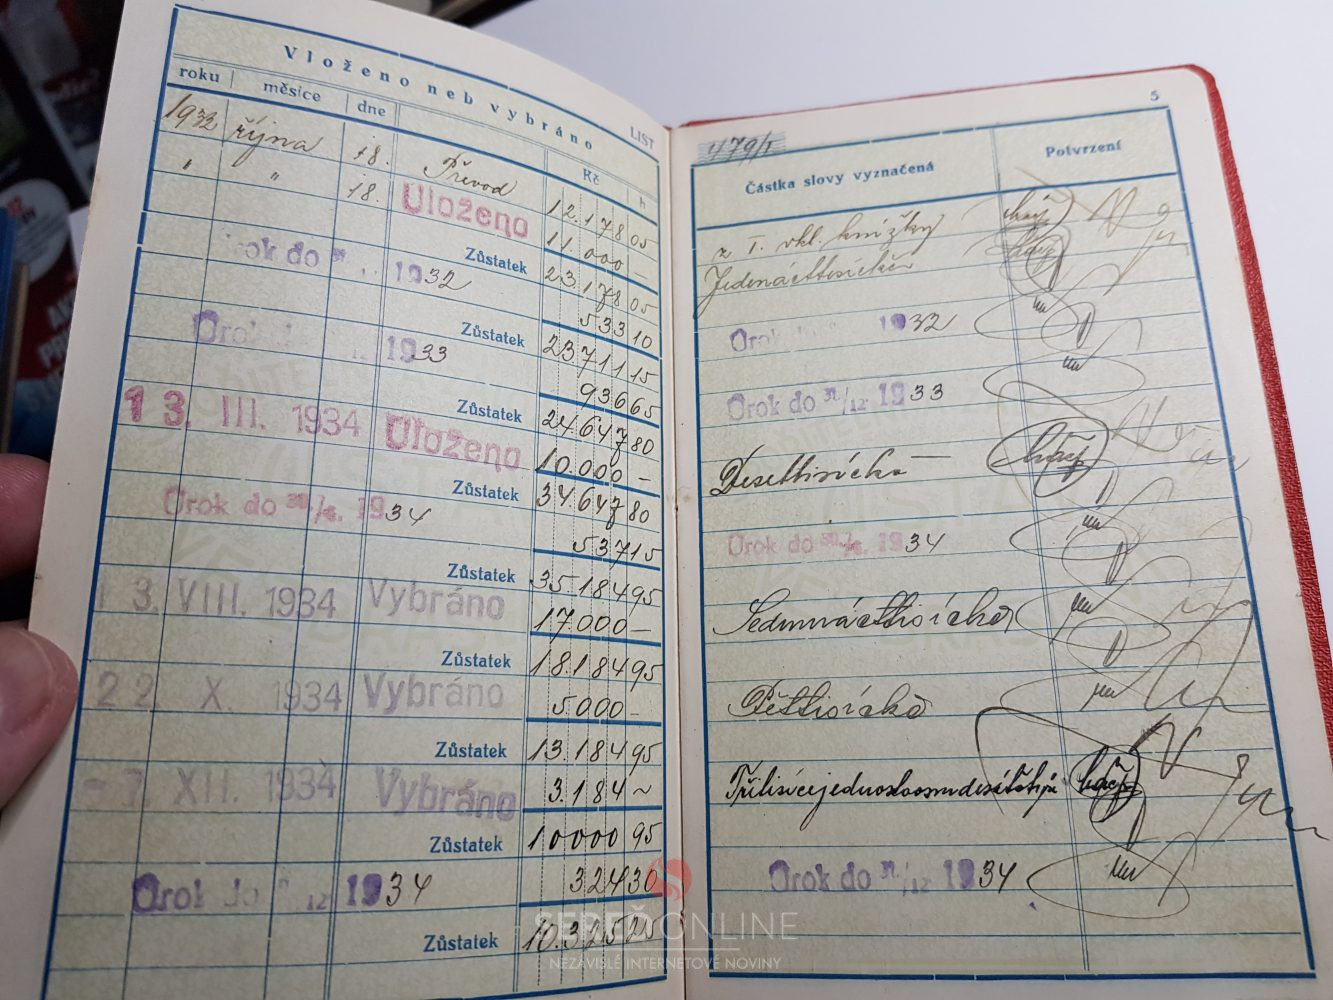 Vloženo neb vybráno
LIST
roku měsíce dne Kč h
1932 října 18. Převod 12.178 05
" " 18. Uloženo 11.000 —
Zůstatek 23.178 05
Úrok do 1932 533 10
Zůstatek 23.711 15
Úrok 1933 936 65
Zůstatek 24.647 80
13. III. 1934 Uloženo 10.000 —
Zůstatek 34.647 80
Úrok do 30/6. 1934 537 15
Zůstatek 35.184 95
13. VIII. 1934 Vybráno 17.000 —
Zůstatek 18.184 95
22 X. 1934 Vybráno 5.000 —
Zůstatek 13.184 95
- 7. XII. 1934 Vybráno 3.184 ~
Zůstatek 10000 95
Úrok do 12 1934 324 30
Zůstatek 10.325 25
5
479/I
Částka slovy vyznačená Potvrzení
z I. vkl. knížky
Jedenácttisíc
1932
Úrok do 31/12 1933
Desettisíc
Úrok do 30/6. 1934
Sedmnácttisíc
Pěttisíc
Třitisícejednostoosmdesátčtyři
Úrok do 31/12 1934
SEREĎ ONLINE
NEZÁVISLÉ INTERNETOVÉ NOVINY